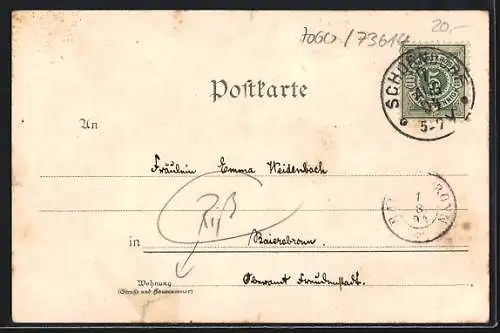 7060/73614
20,-
Postkarte
SCHORND
5-7 V
An
Fräulein Emma Weidenbach
1
8
Riß
in Baiersbronn.
Wohnung
(Straße und Hausnummer)
Oberamt Freudenstadt.